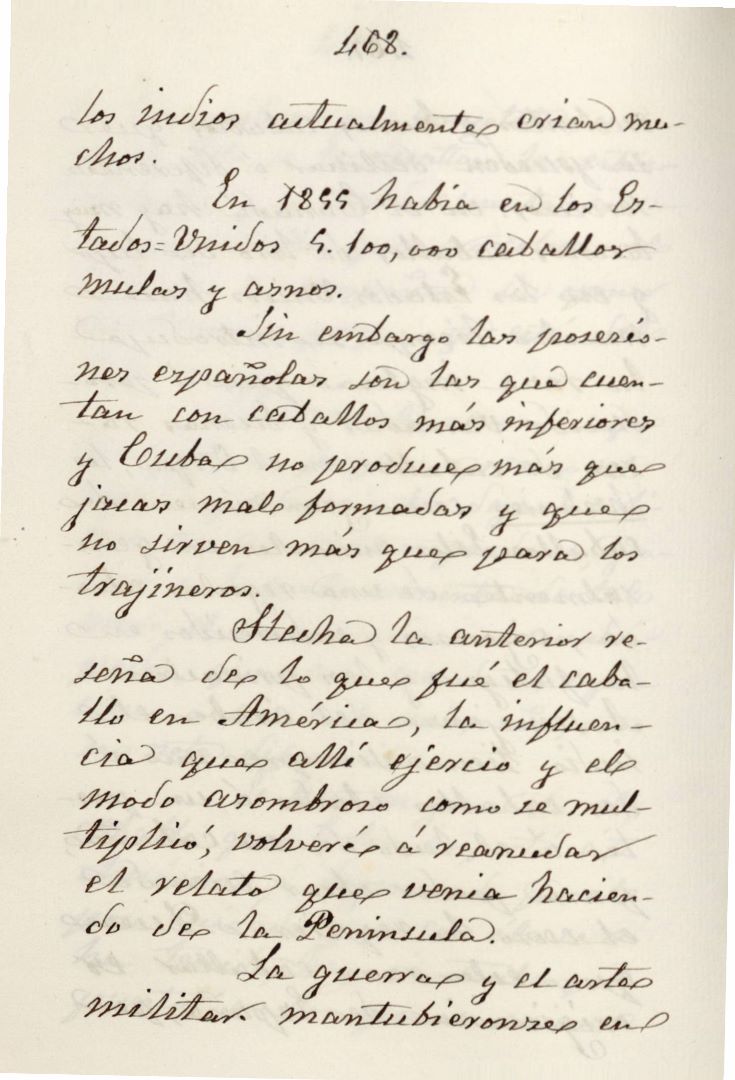 468.
los indios actualmente crian mu-
chos.
En 1855 habia en los Es-
tados=Unidos 5.100,000 caballos
mulas y asnos.
Sin embargo las posesio-
nes españolas son las que cuen-
tan con caballos más inferiores
y Cuba no produce más que
jacas mal formadas y que
no sirven más que para los
trajineros.
Hecha la anterior re-
seña de lo que fué el caba-
llo en América, la influen-
cia que allí ejercio y el
modo asombroso como se mul-
tiplicó, volveré á reanudar
el relato que venia hacien-
do de la Peninsula.
La guerra y el arte
militar. mantubieronse en